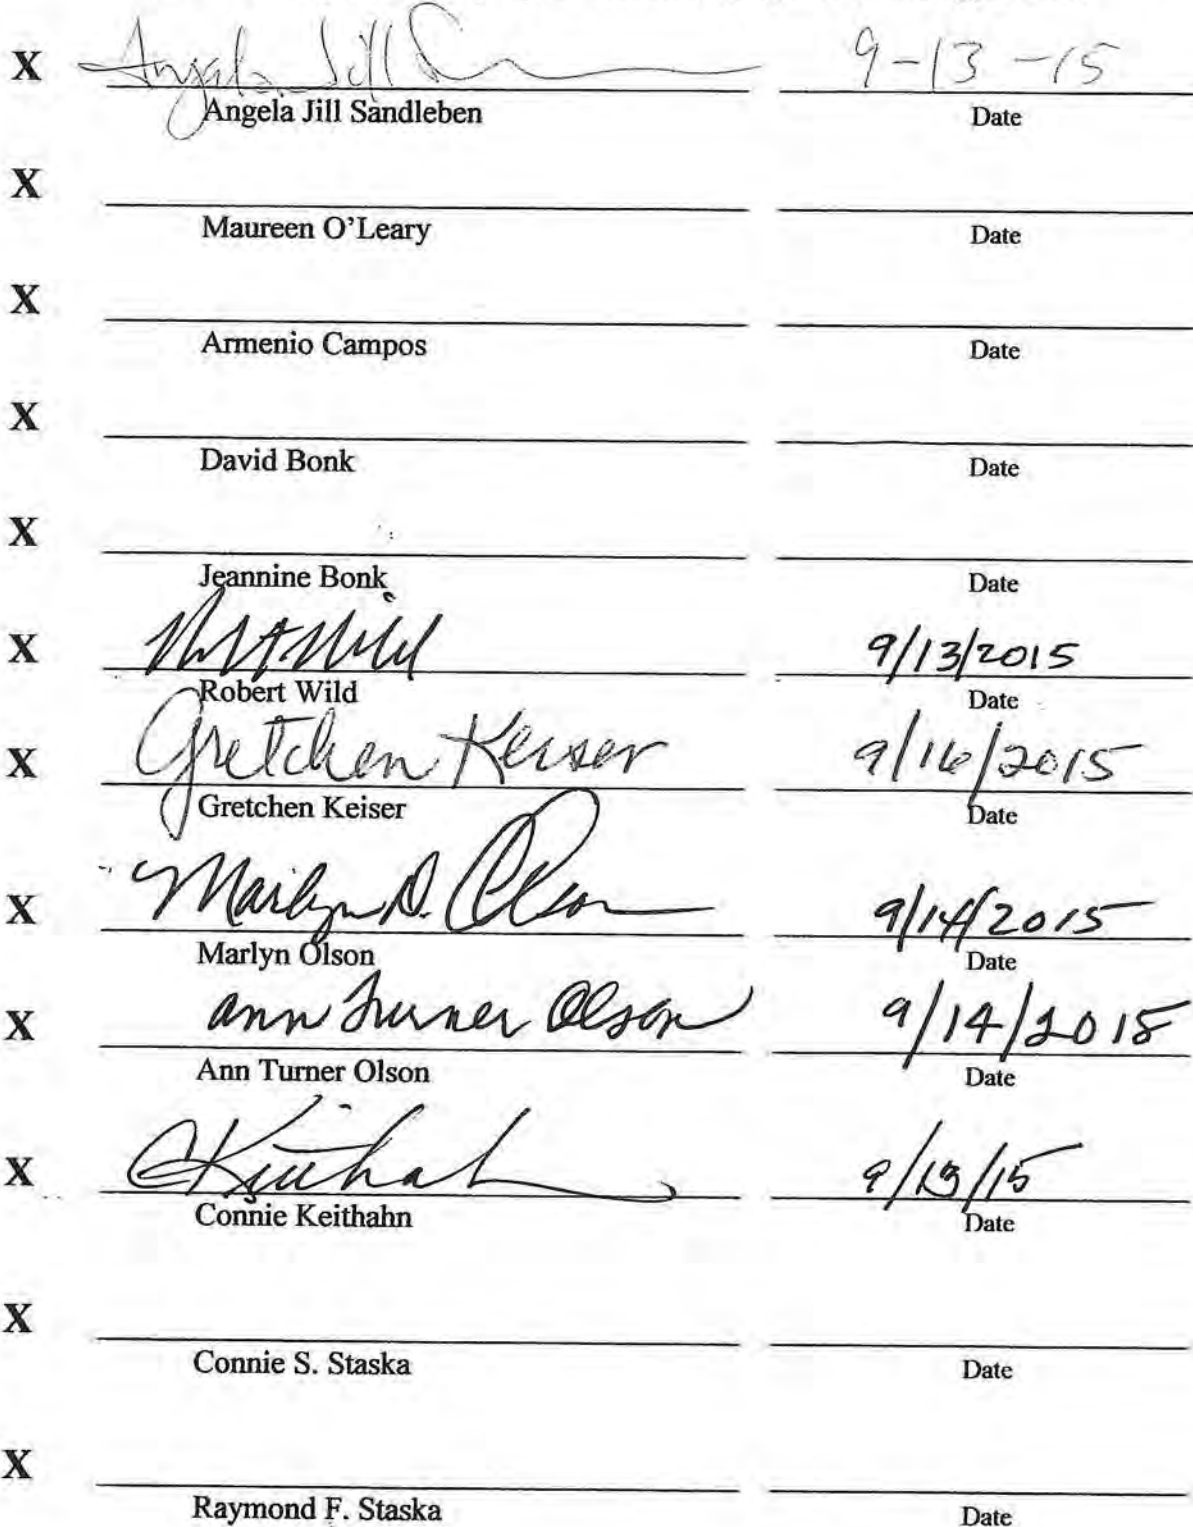 X Angela Jill 9-13-15
Angela Jill Sandleben Date
X
Maureen O'Leary Date
X
Armenio Campos Date
X
David Bonk Date
X
Jeannine Bonk Date
X 9/13/2015
Robert Wild Date
X Gretchen Keiser 9/16/2015
Gretchen Keiser Date
X Marlyn D. Olson 9/14/2015
Marlyn Olson Date
X Ann Turner Olson 9/14/2015
Ann Turner Olson Date
X CKeithahn 9/13/15
Connie Keithahn Date
X
Connie S. Staska Date
X
Raymond F. Staska Date